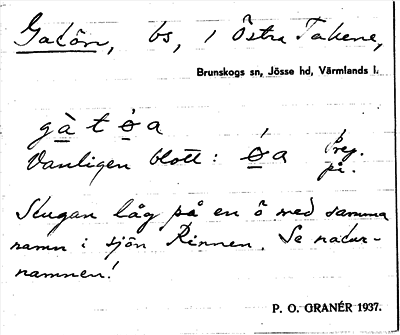 Gatön, bs, i Östra Takene,
Brunskogs sn, Jösse hd, Värmlands l.
gà t ö̀ a
Vanligen blott: ǿ a Prep. på.
Stugan låg på en ö med samma
namn i sjön Rinnen. Se natur-
namnen!
P. O. GRANÉR 1937.